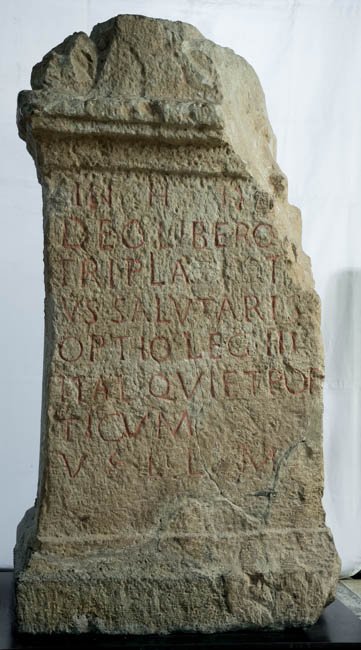 IN H
DEO LIBERO
TRIPLA
VS SALVTARI
OPTIO LEG III
ITAL QVI ET
TICVM
V S L L M